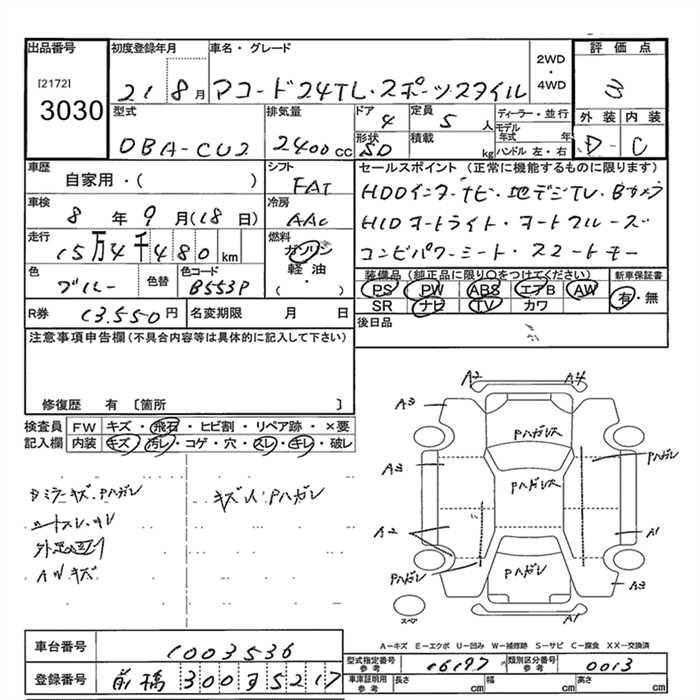 出品番号 初度登録年月 車名・グレード 2WD・4WD 評価点
[2172]
3030
21 8月 アコード24TL・スポーツスタイル 3
型式 排気量 ドア 定員 ディーラー・並行 外装 内装
DBA-CU2 2400cc 4 5人 モデル年式 年 D-C
形状 積載 ハンドル 左・右
SD kg
車歴 シフト セールスポイント(正常に機能するものに限ります)
自家用・( ) FAT
車検 冷房 HDDインターナビ・地デジTV・Bカメラ
8年9月(18日) AAC HIDオートライト・オートクルーズ
走行 燃料 コンビパワーシート・スマートキー
15万4千480km ガソリン
軽油
( )
色 色替 色コード
ブルー B553P
装備品(純正品に限り○をつけてください) 新車保証書
PS PW ABS エアB AW 有・無
SR ナビ TV カワ
R券 13.550円 名変期限 月 日
後日品
注意事項申告欄(不具合内容等は具体的に記入して下さい)
修復歴 有 〔箇所 〕
検査員記入欄 FW キズ・飛石・ヒビ割・リペア跡・×要
内装 キズ・汚レ・コゲ・穴・スレ・キレ・破レ
Dミラーキズ・Pハガレ
キズ人・Pハガレ
シートスレ・キレ
AWキズ
A2 A4
A3
Pハガレ大
Pハガレ
A3
Pハガレ大
A2 A1
Pハガレ
Pハガレ
A3
スペア A1
A-キズ E-エクボ U-凹み W-補修跡 S-サビ C-腐食 XX-交換済
車台番号 1003536
型式指定番号参考 16197 類別区分番号参考 0013
登録番号 前橋300す5217
車庫証明用参考 長さ cm 幅 cm 高さ cm